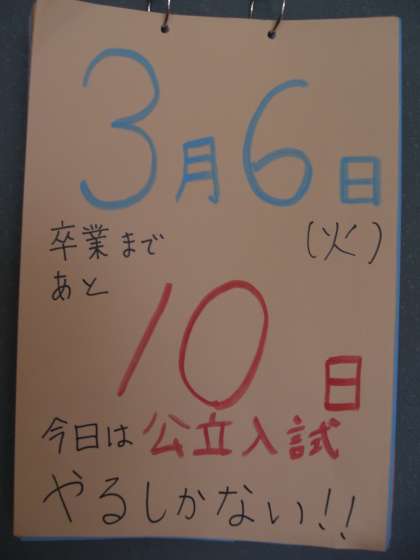 3月6日
(火)
卒業まで
あと
10日
今日は公立入試
やるしかない!!